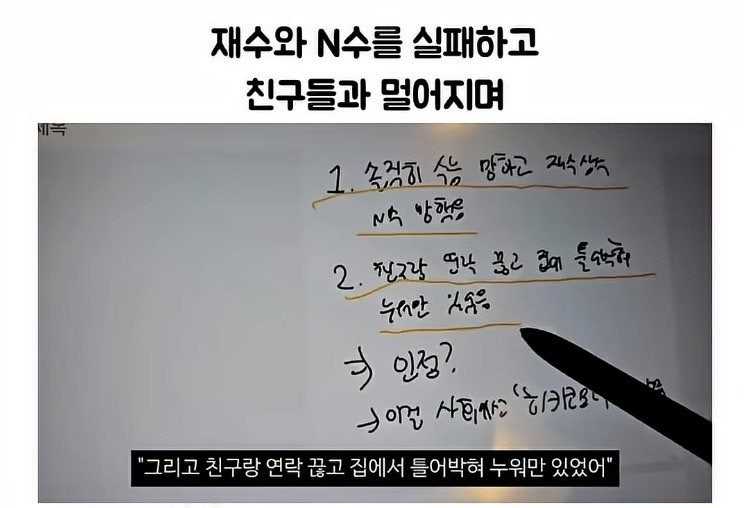 재수와 N수를 실패하고
친구들과 멀어지며
제목
1. 솔직히 수능 망하고 재수삼수
N수 망했음
2. 친구랑 연락 끊고 집에 틀어박혀
누워만 있었음
→ 인정?
→ 이걸 사회에선 '히키코모리
"그리고 친구랑 연락 끊고 집에서 틀어박혀 누워만 있었어"